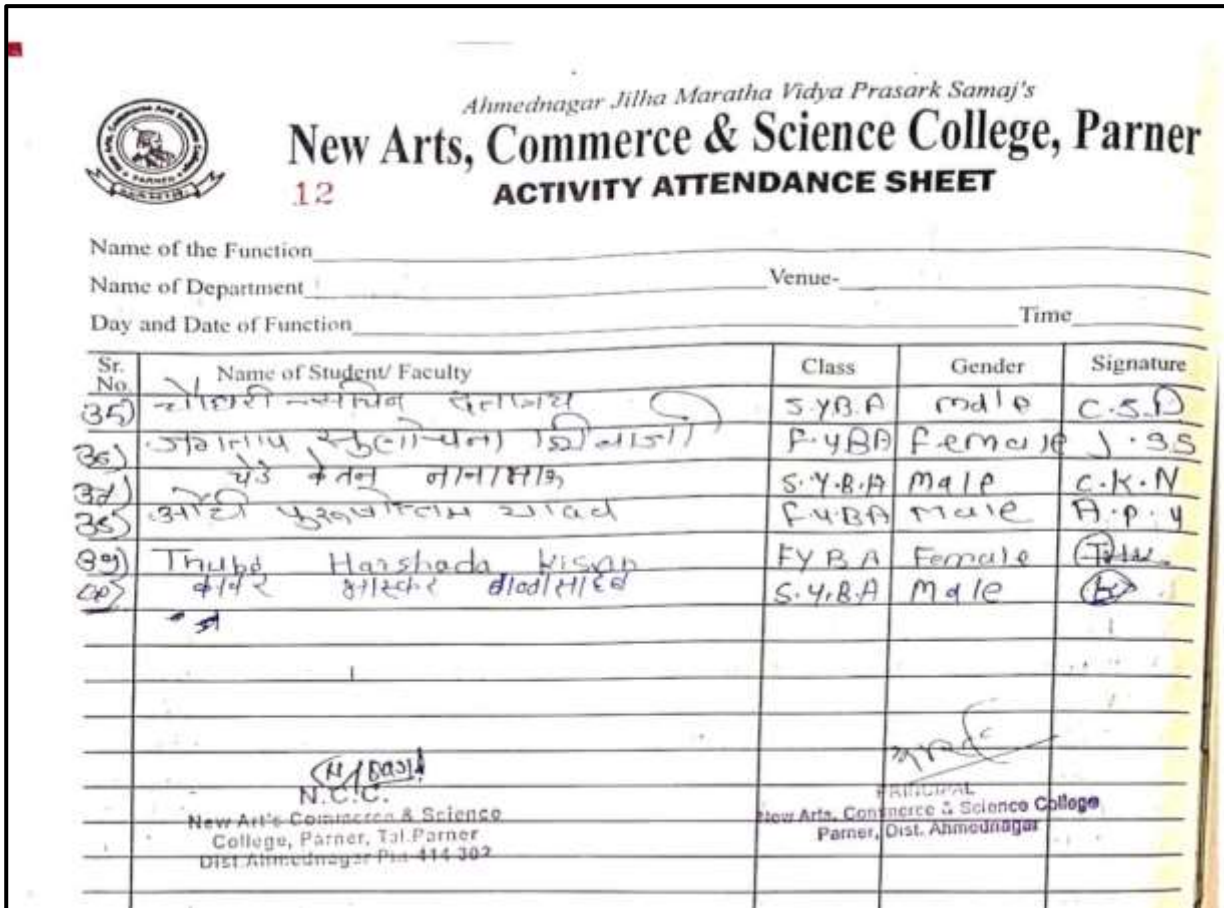 Ahmednagar Jilha Maratha Vidya Prasark Samaj's
New Arts, Commerce & Science College, Parner
12 ACTIVITY ATTENDANCE SHEET
Name of the Function
Name of Department Venue-
Day and Date of Function Time
Sr. No. Name of Student/ Faculty Class Gender Signature
35) चौधरी सचिन दत्तात्रय S.YB.A male C.S.D
36) जगताप सुलोचना शिवाजी F.YBA Female J.SS
चेडे केतन नानाभाऊ S.Y.B.A Male C.K.N
औटी पुरुषोत्तम यादव F.YBA Male A.P.Y
39) Thube Harshada Kisan FYBA Female
कावरे भास्कर बाळासाहेब S.Y.B.A Male
N.C.C.
New Art's Commerce & Science
College, Parner, Tal.Parner
Dist.Ahmednagar Pin 414 302
PRINCIPAL
New Arts, Commerce & Science College
Parner, Dist. Ahmednagar